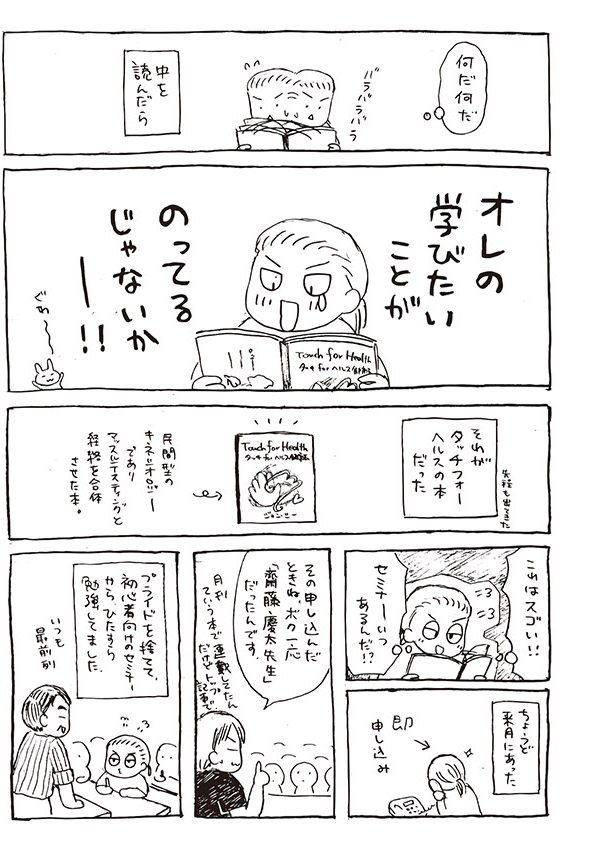 何だ何だ
バラバラバラ
中を
読んだら
オレの
学びたい
ことが
のってる
じゃないか
ー!!
ぐわ〜〜
Touch for Health
タッチ for ヘルス健康法
それが
タッチフォー
ヘルスの本
だった
先程も出てきた
Touch for Health
タッチ for ヘルス健康法
民間型の
キネシオロジー
であり
マッスルテスティングと
経絡を合体
させた本。
これはスゴい!!
セミナーいつ
あるんだ!?
ちょうど
来月にあった
即
申し込み
その申し込んだ
ときね、ボク一応
「齋藤慶太先生」
だったんです。
月刊
ていう本で連載してたん
だけどトップ
記事で
プライドを捨てて、
初心者向けのセミナー
からひたすら
勉強してました
いつも
最前列